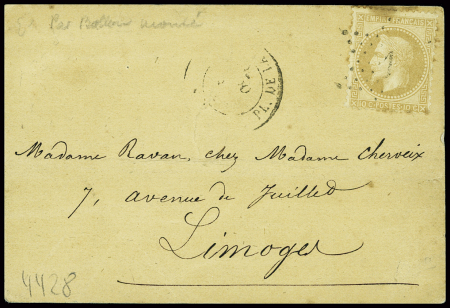 Par Ballon monté
EMPIRE FRANÇAIS
PL. DE LA
Madame Ravan, chez Madame Cherveix
7, avenue de Juillet
Limoges
4428